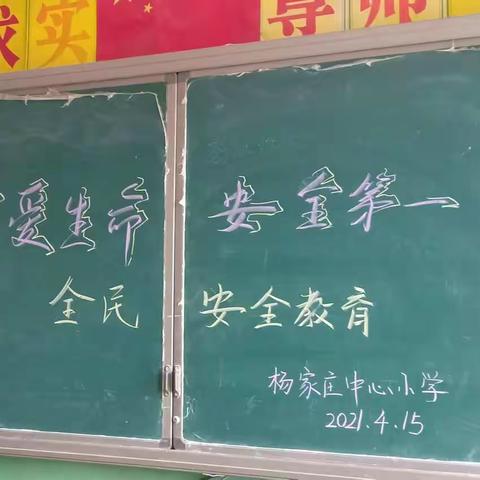 实 尊师
爱生命 安全第一
全民 安全教育
杨家庄中心小学
2021.4.15